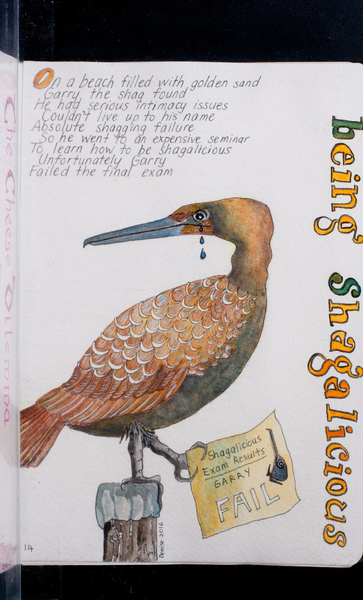 On a beach filled with golden sand
Garry the shag found
He had serious intimacy issues
Couldn't live up to his name
Absolute shagging failure
So he went to an expensive seminar
To learn how to be shagalicious
Unfortunately Garry
Failed the final exam
being Shagalicious
Shagalicious
Exam Results
GARRY
FAIL
Denise 2016
14
The Cheese Dilemma